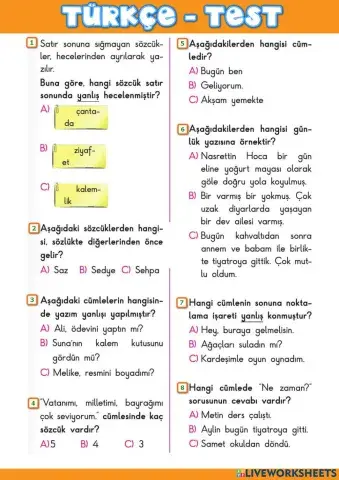 TÜRKÇE - TEST
1 Satır sonuna sığmayan sözcük-
ler, hecelerinden ayrılarak ya-
zılır.
Buna göre, hangi sözcük satır
sonunda yanlış hecelenmiştir?
A) çanta-
da
B) ziyaf-
et
C) kalem-
lik
2 Aşağıdaki sözcüklerden hangi-
si, sözlükte diğerlerinden önce
gelir?
A) Saz B) Sedye C) Sehpa
3 Aşağıdaki cümlelerin hangisin-
de yazım yanlışı yapılmıştır?
A) Ali, ödevini yaptın mı?
B) Suna'nın kalem kutusunu
gördün mü?
C) Melike, resmini boyadımı?
4 "Vatanımı, milletimi, bayrağımı
çok seviyorum." cümlesinde kaç
sözcük vardır?
A)5 B) 4 C) 3
5 Aşağıdakilerden hangisi cüm-
ledir?
A) Bugün ben
B) Geliyorum.
C) Akşam yemekte
6 Aşağıdakilerden hangisi gün-
lük yazısına örnektir?
A) Nasrettin Hoca bir gün
eline yoğurt mayası olarak
göle doğru yola koyulmuş.
B) Bir varmış bir yokmuş. Çok
uzak diyarlarda yaşayan
bir dev ailesi varmış.
C) Bugün kahvaltıdan sonra
annem ve babam ile birlik-
te tiyatroya gittik. Çok mut-
lu oldum.
7 Hangi cümlenin sonuna nokta-
lama işareti yanlış konmuştur?
A) Hey, buraya gelmelisin.
B) Ağaçları suladın mı?
C) Kardeşimle oyun oynadım.
8 Hangi cümlede "Ne zaman?"
sorusunun cevabı vardır?
A) Metin ders çalıştı.
B) Aylin bugün tiyatroya gitti.
C) Samet okuldan döndü.
LIVEWORKSHEETS